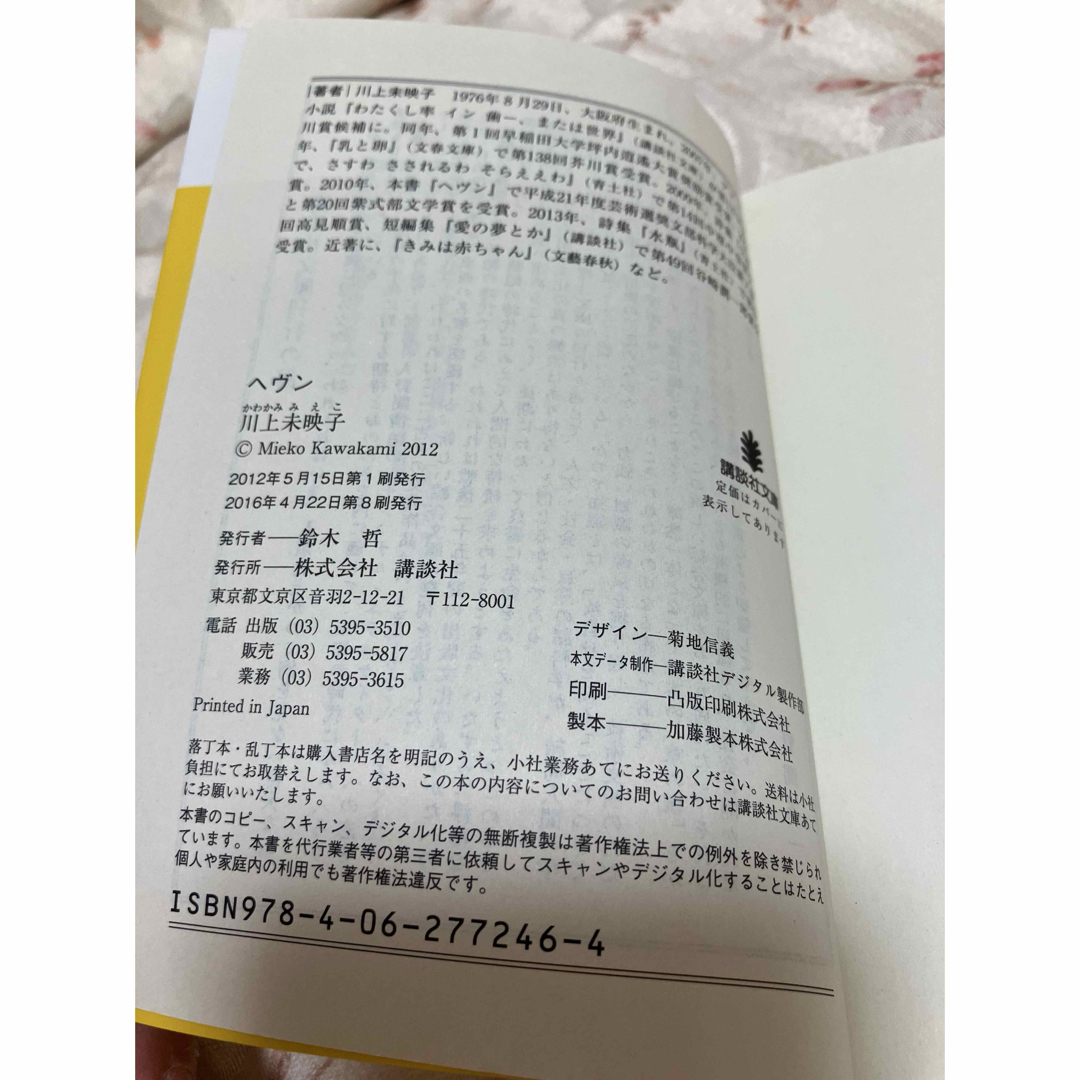 |著者|川上未映子 1976年8月29日、大阪府生まれ。
小説『わたくし率 イン 歯ー、または世界』(講談社文庫)が芥
川賞候補に。同年、第1回早稲田大学坪内逍遙大賞奨励賞
年、『乳と卵』(文春文庫)で第138回芥川賞受賞。2009年、
で、さすわ さされるわ そらええわ』(青土社)で第14回中原中
賞。2010年、本書『ヘヴン』で平成21年度芸術選奨文部科学大臣
と第20回紫式部文学賞を受賞。2013年、詩集『水瓶』(青土社)
回高見順賞、短編集『愛の夢とか』(講談社)で第49回谷崎潤一郎
受賞。近著に、『きみは赤ちゃん』(文藝春秋)など。
ヘヴン
かわかみ み え こ
川上未映子
© Mieko Kawakami 2012
2012年5月15日第1刷発行
2016年4月22日第8刷発行
発行者――鈴木 哲
発行所――株式会社 講談社
東京都文京区音羽2-12-21 〒112-8001
電話 出版 (03) 5395-3510
販売 (03) 5395-5817
業務 (03) 5395-3615
Printed in Japan
講談社文庫
定価はカバーに
表示してあります
デザイン―菊地信義
本文データ制作―講談社デジタル製作部
印刷――――凸版印刷株式会社
製本――――加藤製本株式会社
落丁本・乱丁本は購入書店名を明記のうえ、小社業務あてにお送りください。送料は小社
負担にてお取替えします。なお、この本の内容についてのお問い合わせは講談社文庫あて
にお願いいたします。
本書のコピー、スキャン、デジタル化等の無断複製は著作権法上での例外を除き禁じられ
ています。本書を代行業者等の第三者に依頼してスキャンやデジタル化することはたとえ
個人や家庭内の利用でも著作権法違反です。
ISBN978-4-06-277246-4